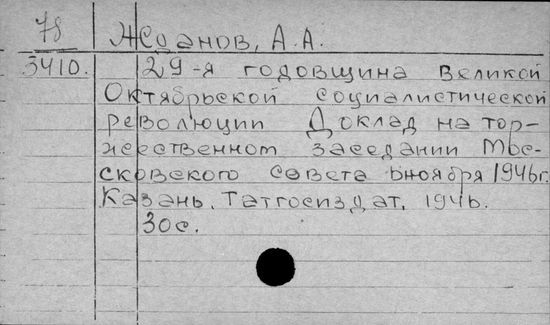 78 Жданов, А.А.
3410. 29-я годовщина Великой
Октябрьской социалистической
революции Доклад на тор-
жественном заседании Мос-
сковского совета 6 ноября 1946 г.
Казань. Татгосиздат, 1946.
30 с.